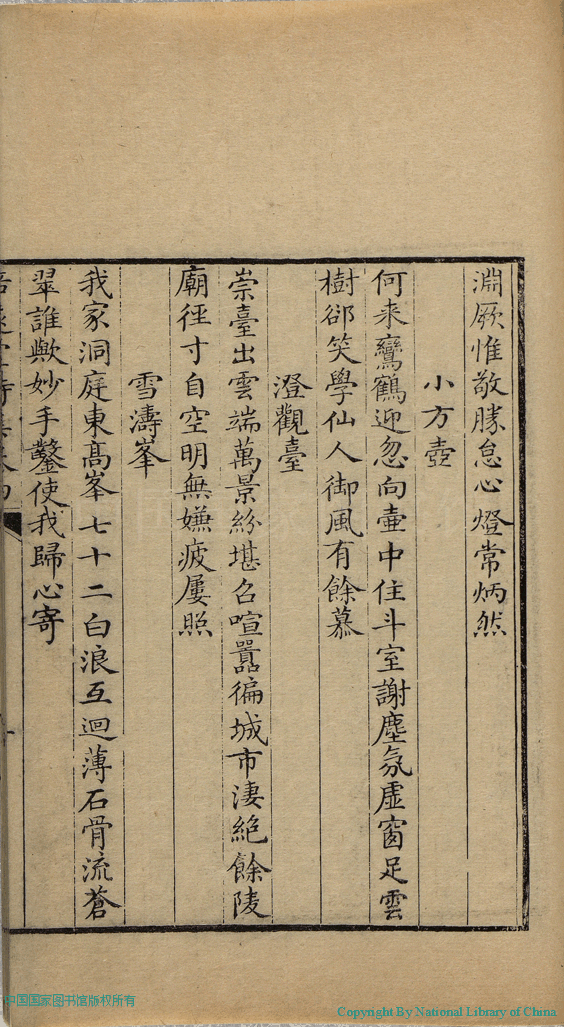 淵厥惟敬勝怠心燈常炳然
小方壺
何来鸞鶴迎忽向壷中住斗室謝塵氛虛窗足雲
樹郤笑學仙人御風有餘慕
澄觀臺
崇臺出雲端萬景紛堪召喧囂徧城市淒絶餘陵
廟徑寸自空明無嫌疲屢照
雪濤峯
我家洞庭東髙峯七十二白浪互迴薄石骨流蒼
翠誰歟妙手鑿使我歸心寄
中国国家图书馆版权所有
Copyright By National Library of China